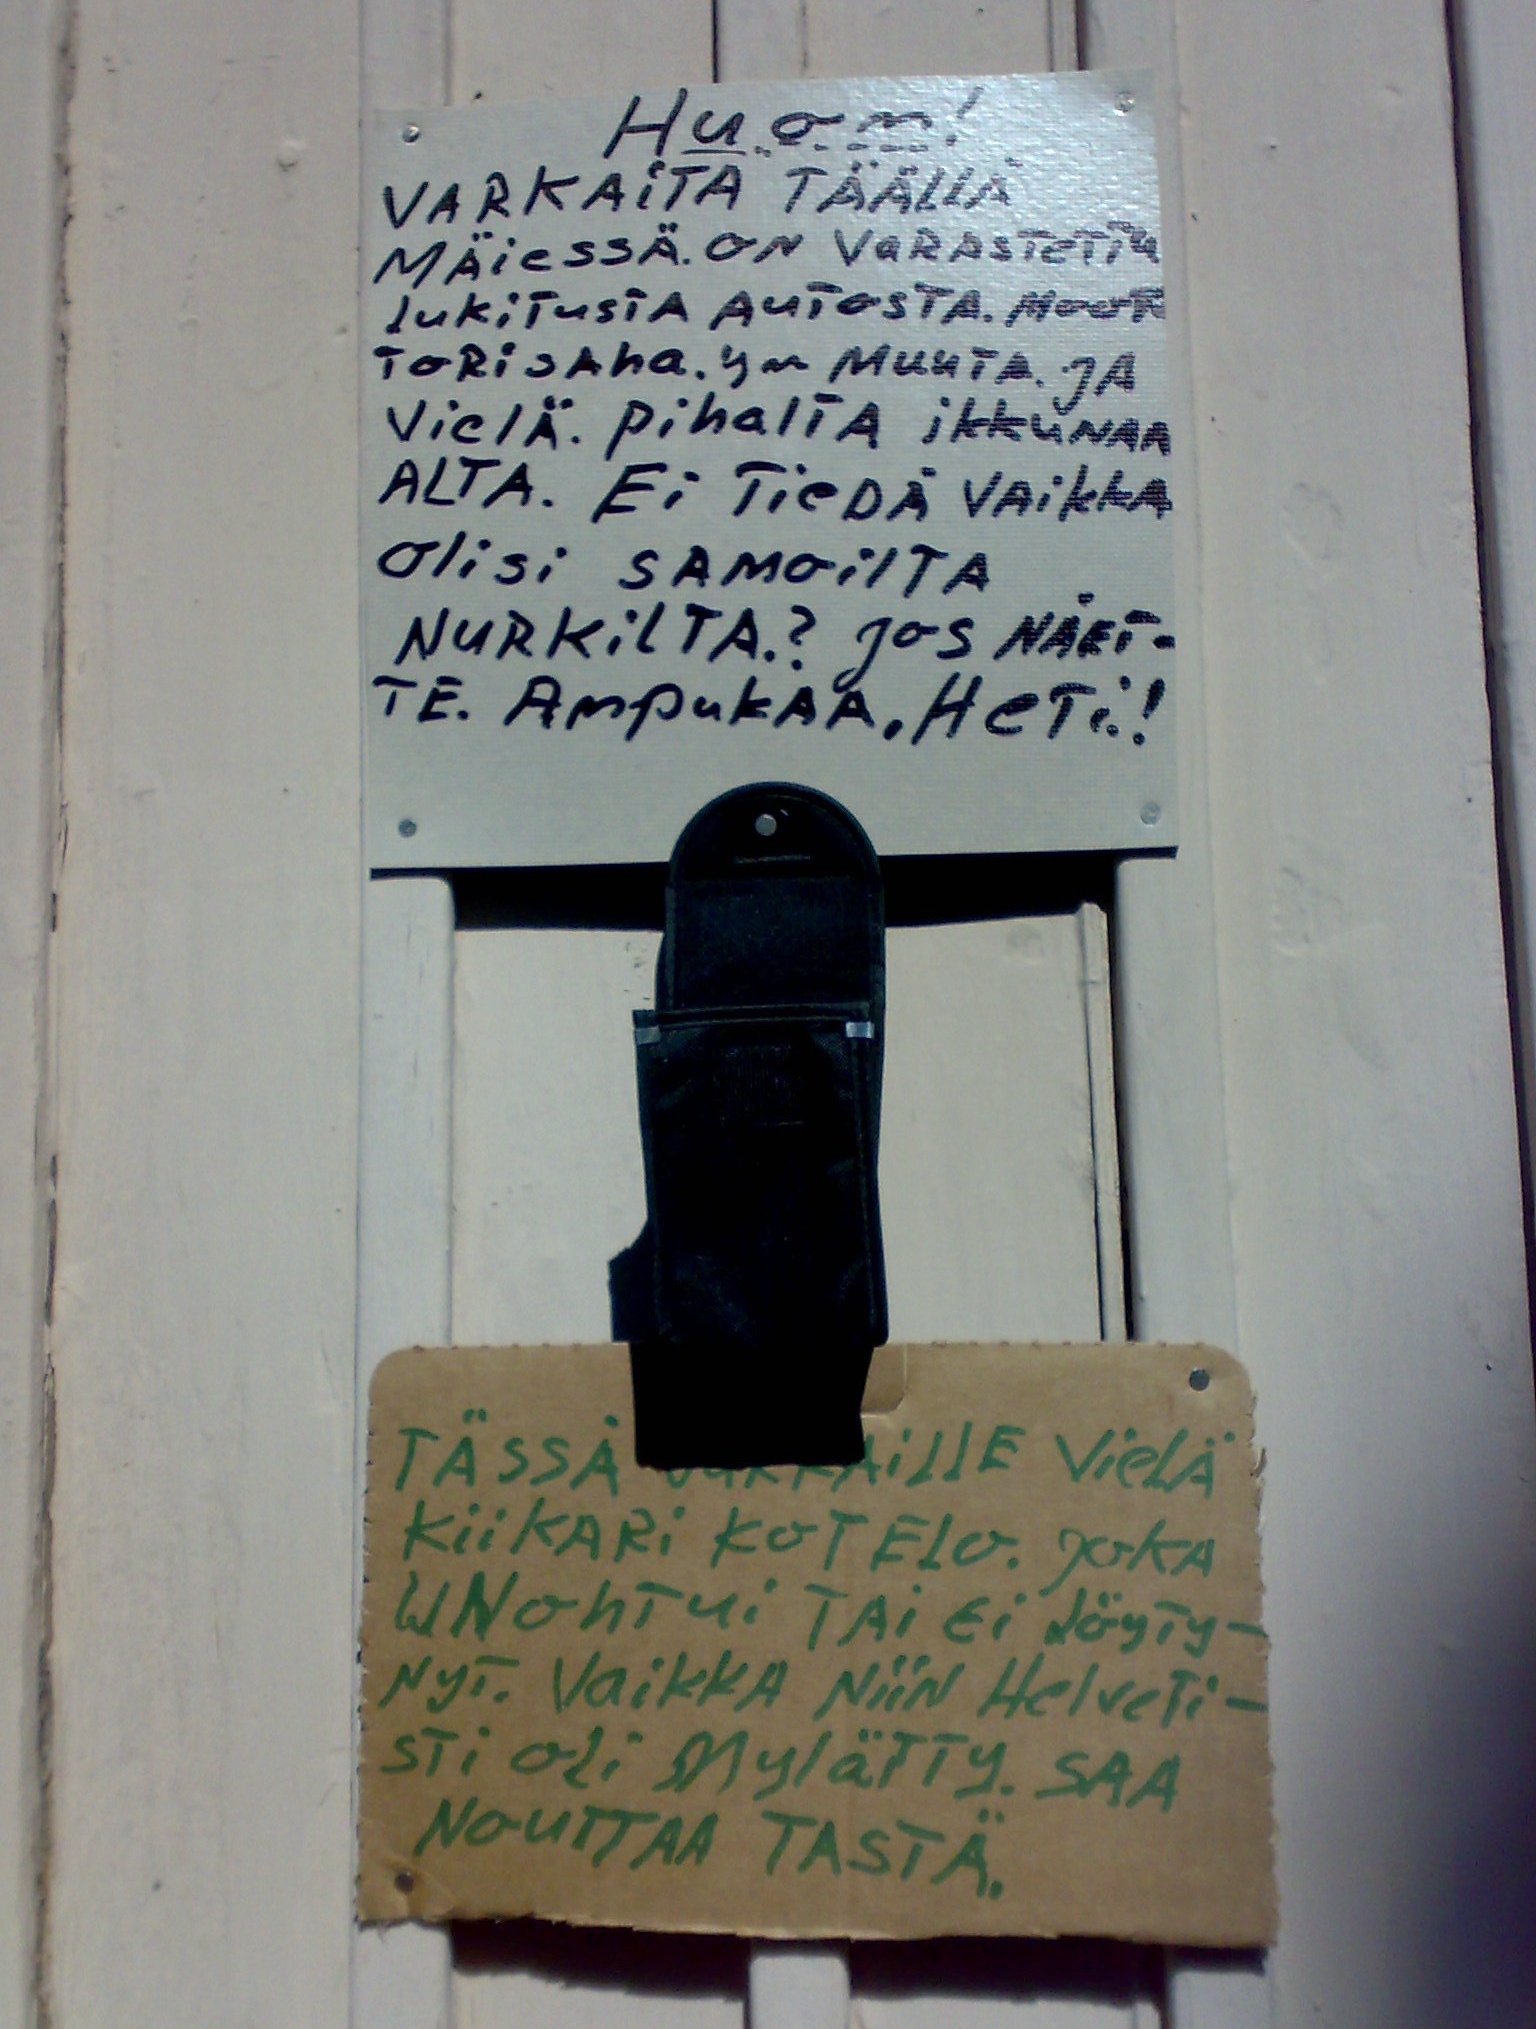 Huom!
VARKAITA TÄÄLLÄ
MÄIESSÄ. ON VARASTETTU
LUKITUSTA AUTOSTA. MOOT
TORISAHA. YM MUUTA. JA
VIELÄ. PIHALTA IKKUNAA
ALTA. Ei TIEDÄ VAIKKA
OLISI SAMOILTA
NURKILTA.? JOS NÄET-
TE. AMPUKAA. HETI.!
TÄSSÄ VARKAILLE VIELÄ
KIIKARI KOTELO. JOKA
UNOHTUI TAI EI LÖYTY-
NYT. VAIKKA NIIN HELVETI-
STI OLI MYLÄTTY. SAA
NOUTTAA TASTÄ.